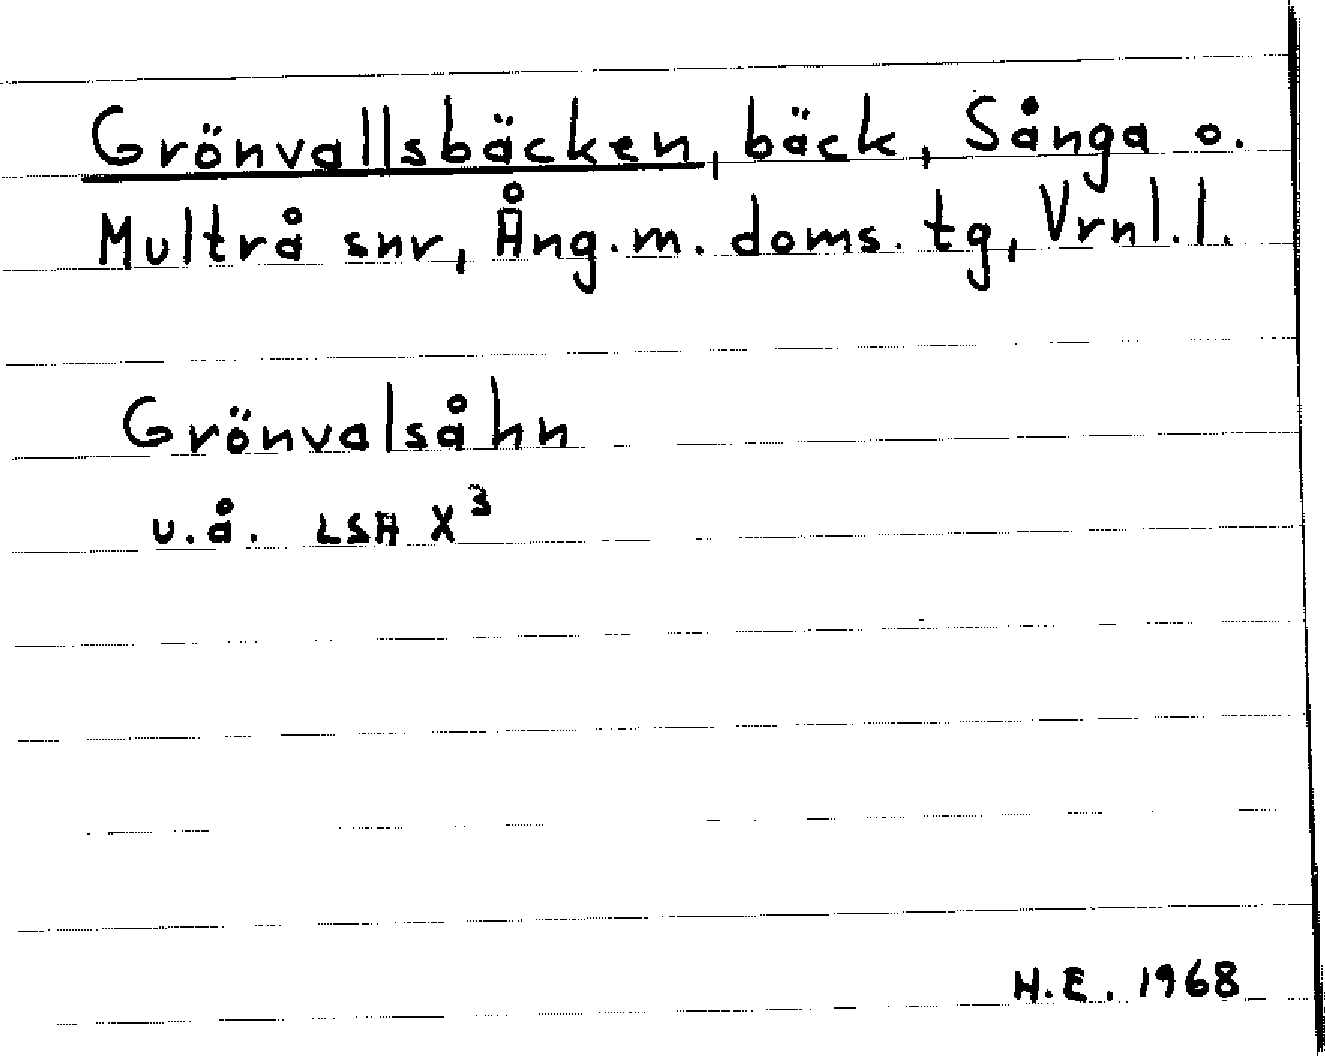 Grönvallsbäcken, bäck, Sånga o.
Multrå snr, Ång.m. doms. tg, Vrnl. l.
Grönvalsåhn
u.å. LSA X³
H.E. 1968